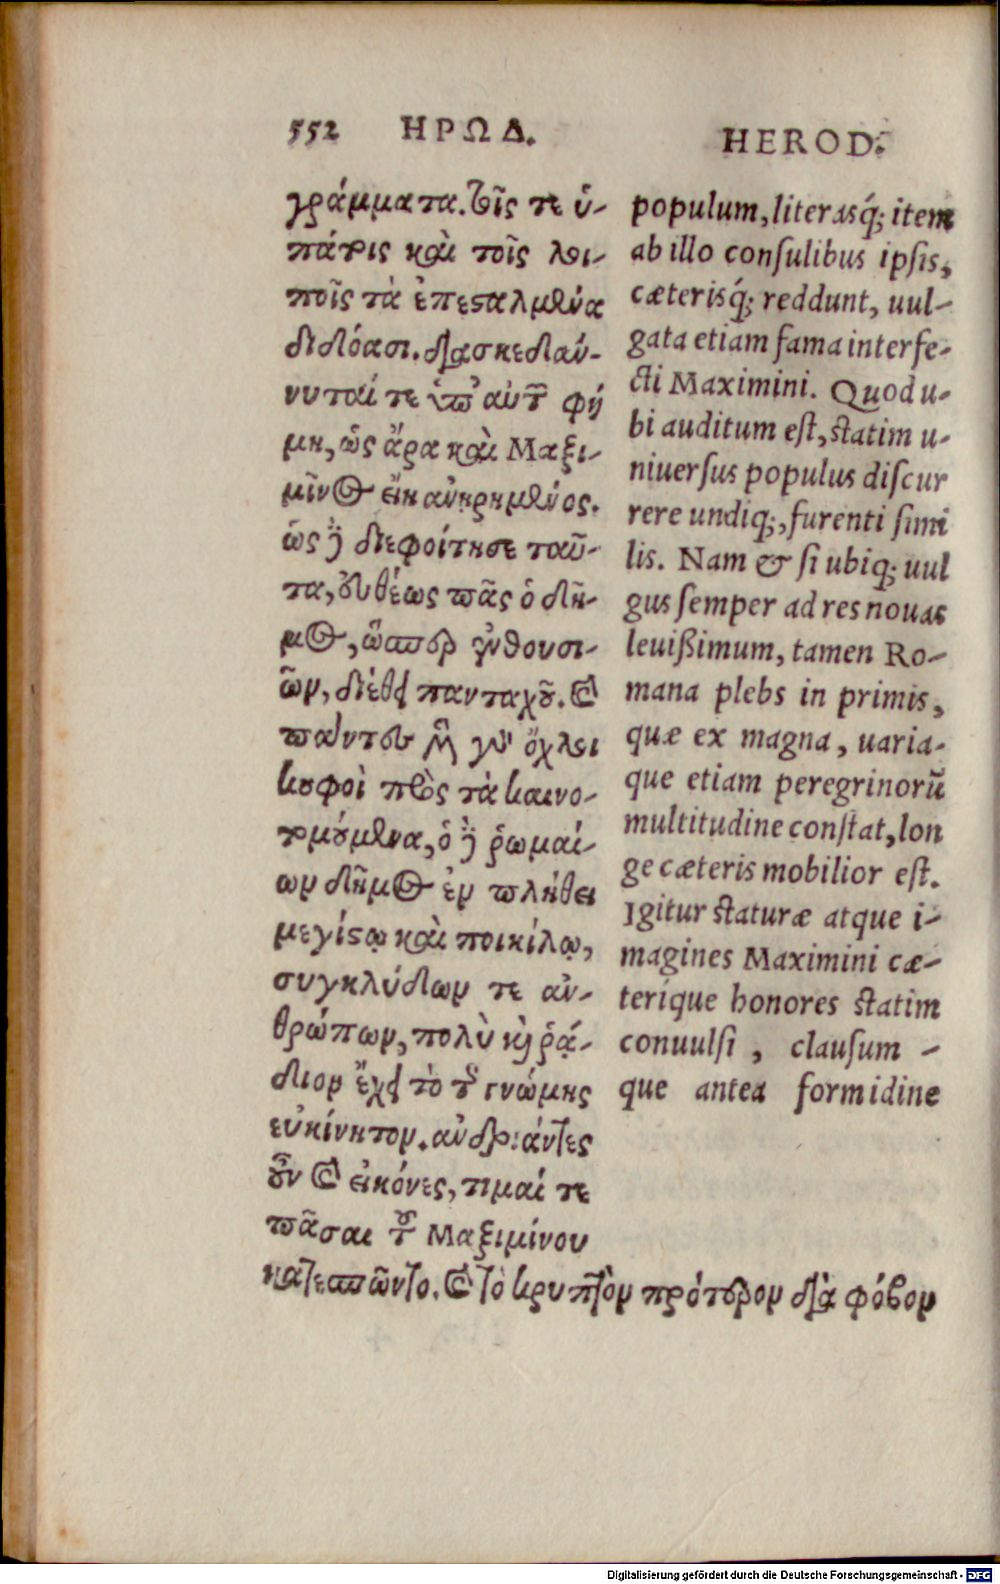 552 ΗΡΩΔ.
γράμματα. τοῖς τε ὑ-
πάτοις καὶ τοῖς λοι-
ποῖς τὰ ἐπεσταλμένα
διδόασι. διασκεδάν-
νυταί τε ὑπ' αὐτῶν φή
μη, ὡς ἄρα καὶ Μαξι-
μῖνος εἴη ἀνῃρημένος.
ὡς δὲ διεφοίτησε ταῦ-
τα, εὐθέως πᾶς ὁ δῆ-
μος, ὥσπερ ἐνθουσι-
ῶν, διέθει πανταχοῦ. καὶ
πάντες μὲν γὰρ ὄχλοι
κοῦφοι πρὸς τὰ καινο-
τομούμενα, ὁ δὲ ῥωμαί-
ων δῆμος ἐν πλήθει
μεγίστῳ καὶ ποικίλῳ,
συγκλύδων τε ἀν-
θρώπων, πολὺ καὶ ῥᾴ-
διον ἔχει τὸ τῆς γνώμης
εὐκίνητον. ἀνδριάντες
οὖν καὶ εἰκόνες, τιμαί τε
πᾶσαι τοῦ Μαξιμίνου
κατεσπῶντο. καὶ τὸ κρυπτὸν πρότερον διὰ φόβον
HEROD.
populum, literasq́; item
ab illo consulibus ipsis,
cæterisq́; reddunt, uul-
gata etiam fama interfe-
cti Maximini. Quod u-
bi auditum est, statim u-
niuersus populus discur
rere undiq;, furenti simi
lis. Nam & si ubiq; uul
gus semper ad res nouas
leuißimum, tamen Ro-
mana plebs in primis,
quæ ex magna, uaria-
que etiam peregrinorū
multitudine constat, lon
ge cæteris mobilior est.
Igitur staturæ atque i-
magines Maximini cæ-
terique honores statim
conuulsi, clausum -
que antea formidine
Digitalisierung gefördert durch die Deutsche Forschungsgemeinschaft - DFG